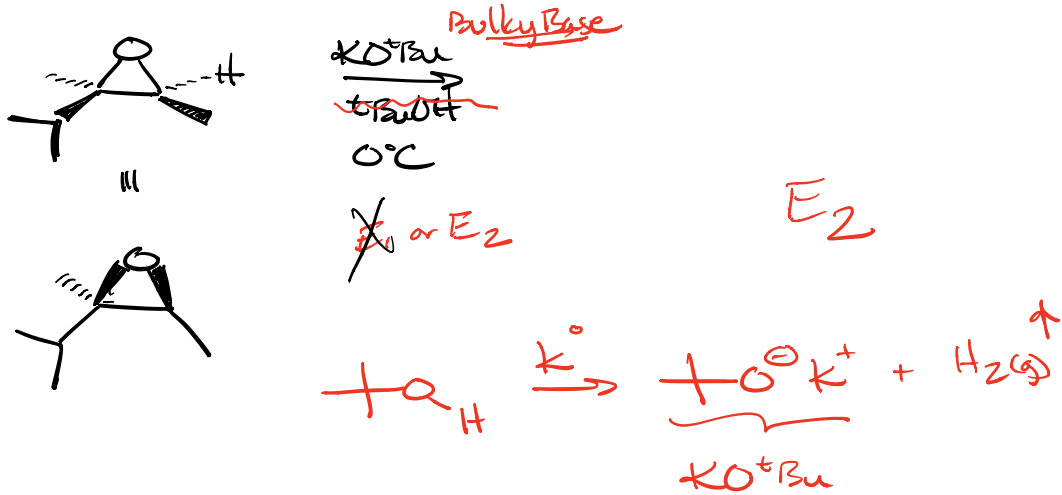 Bulky Base
O
H
KOᵗBu
ᵗBuOH
0°C
≡
E₁ or E₂
E₂
O
O
H
K°
O⊖ K⁺ + H₂(g) ↑
KOᵗBu